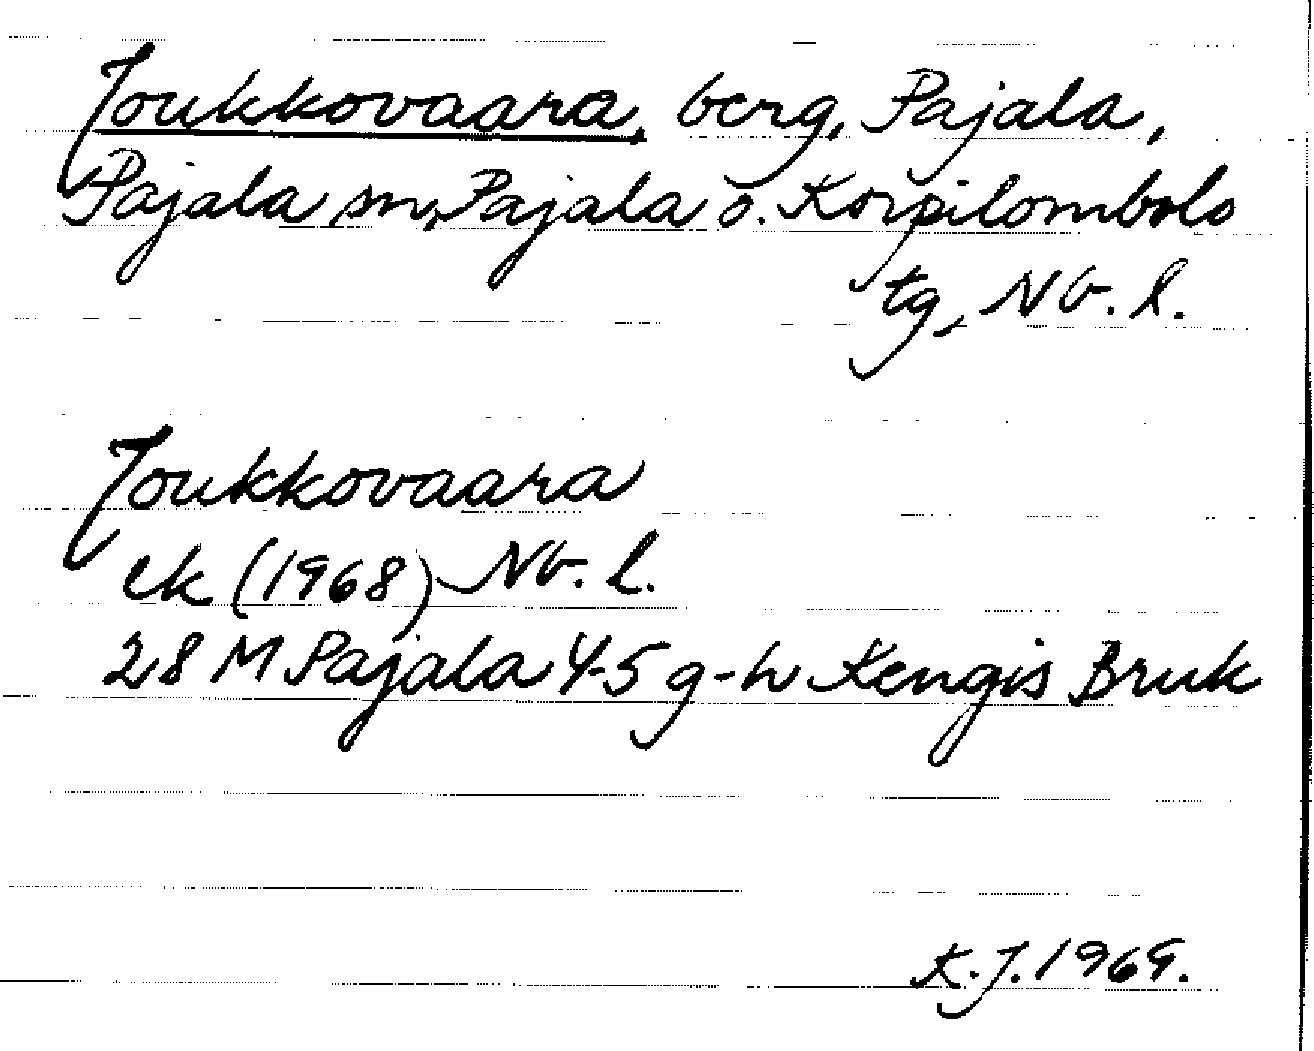 Joukkovaara, berg, Pajala,
Pajala sn, Pajala o. Korpilombolo
tg, Nb. l.
Joukkovaara
ek (1968) Nb. l.
28 M Pajala 4-5 g-h Kengis Bruk
K.J. 1969.